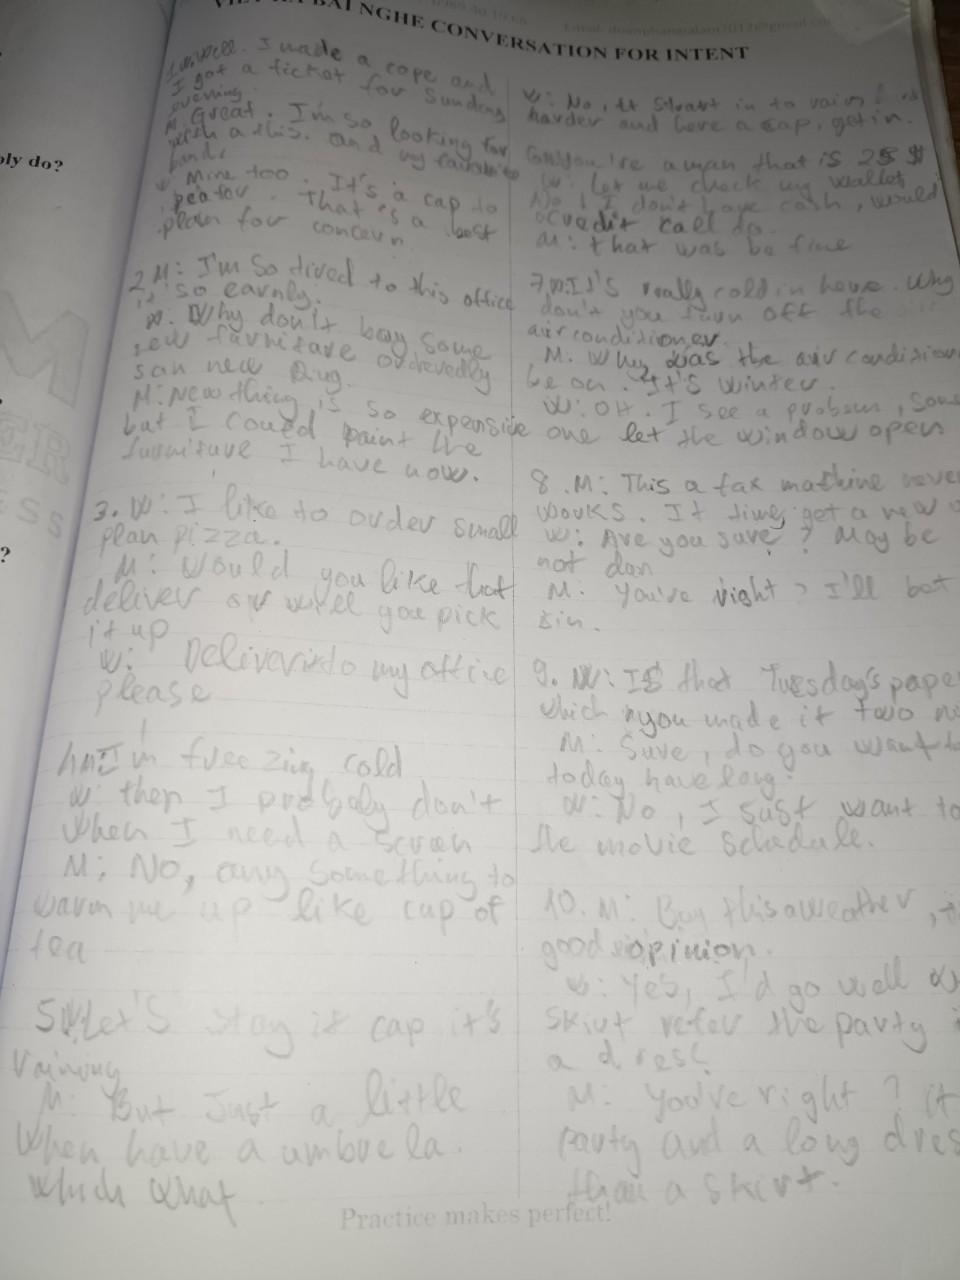 BÀI NGHE CONVERSATION FOR INTENT
ply do?
?
1. W: Well. I made a cope and
I got a ticket for Sunday
evening.
M. Great. I'm so looking for
with a this. and my favorite
band.
W: Mine too. It's a cap to
pea for. That's a best
plain for concern
2 M: I'm so tired to this office
it's so earnly.
W: Why don't boy some
new furnitare orderedly
san new Rug.
M: New thing is so expensive
but I coued paint the
furniture I have now.
3. W: I like to order small
plan pizza.
M: Would you like that
deliver or will you pick
it up
W: Deliver to my office
please
I'm freezing cold
W: then I probaly don't
when I need a scren
M: No, any something to
warm me up like cup of
tea
5 W Let's stay it cap it's
raining
M: But Just a little
When have a umbrela.
which what
W: No, It start in to rain
harder and here a cap, get in.
you're a man that is 25 $
W: Let me check my wallet
No! I don't have cash, would
credit call do
M: that was be fine
7 W: It's really cold in here. Why
don't you turn off the
air conditioner
M. Why was the air condition
be on. It's winter.
W: OH. I see a probem, some
one let the window open
8. M: This a fax mathine never
works. It time get a new
W: Are you sure? May be
not dan
M: You're right? I'll bot
sin.
9. W: IS that Tuesday's pape
which you made it two
M: Sure, do you want to
today have long?
W: No, I sust want to
the movie schedule.
10. M: Boy this a weather,
good opinion.
W: Yes, I'd go well
skirt refer the party
a dress
M: You're right? it
party and a long dres
than a skirt.
Practice makes perfect!